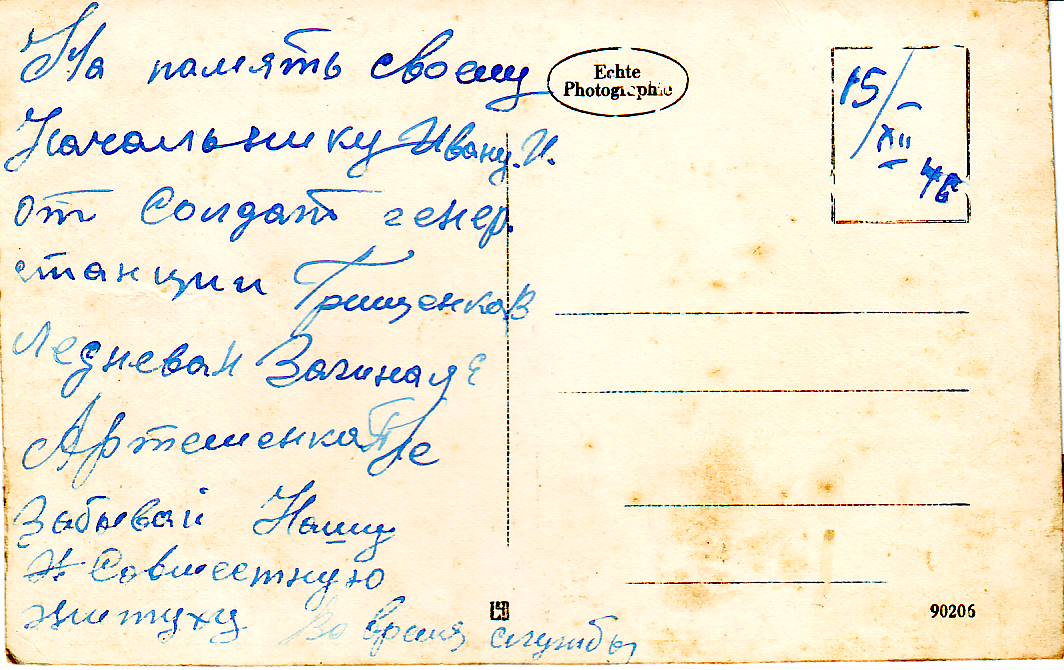 На память своему
Начальнику Ивану. И.
от Солдат генер.
станции Грищенко В
Леднева Н Зачиная Е
Артеменко П Не
Забывай Нашу
Совместную
житуху Во время службы
Echte
Photographie
15/XII 46
90206